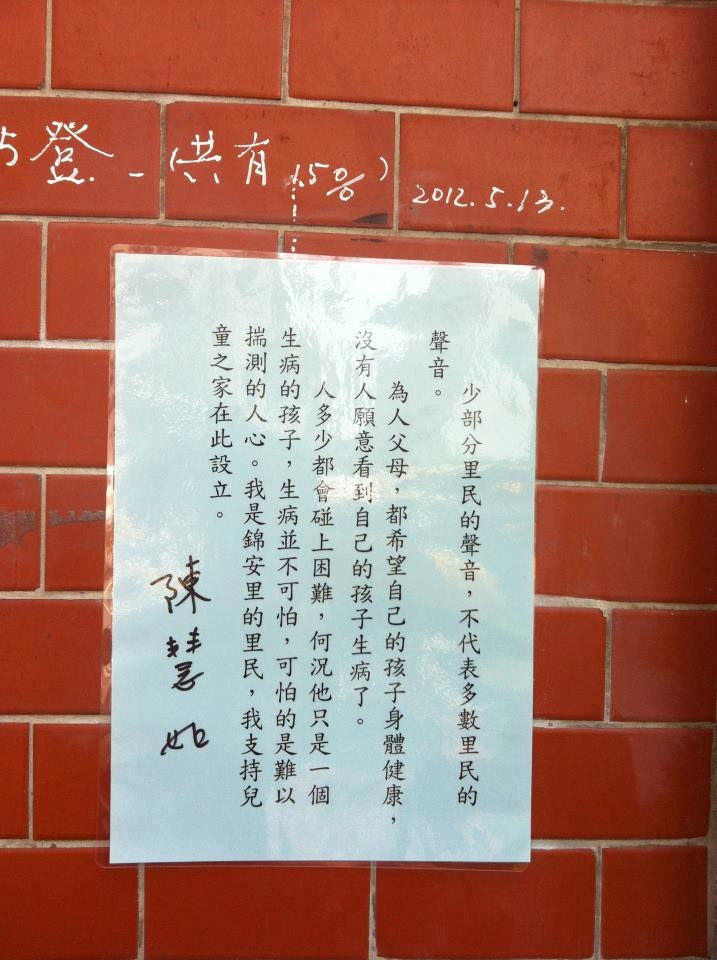 登-(共有15%) 2012.5.13.
少部分里民的聲音，不代表多數里民的
聲音。
為人父母，都希望自己的孩子身體健康，
沒有人願意看到自己的孩子生病了。
人多少都會碰上困難，何況他只是一個
生病的孩子，生病並不可怕，可怕的是難以
揣測的人心。我是錦安里的里民，我支持兒
童之家在此設立。
陳慧